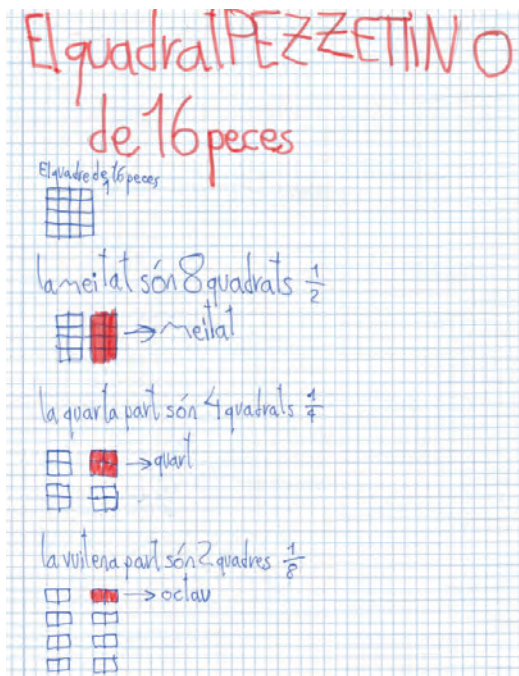 El quadrat PEZZETTINO
de 16 peces
El quadre de 16 peces
la meitat són 8 quadrats 1/2
→ meitat
la quarta part són 4 quadrats 1/4
→ quart
la vuitena part són 2 quadres 1/8
→ octau